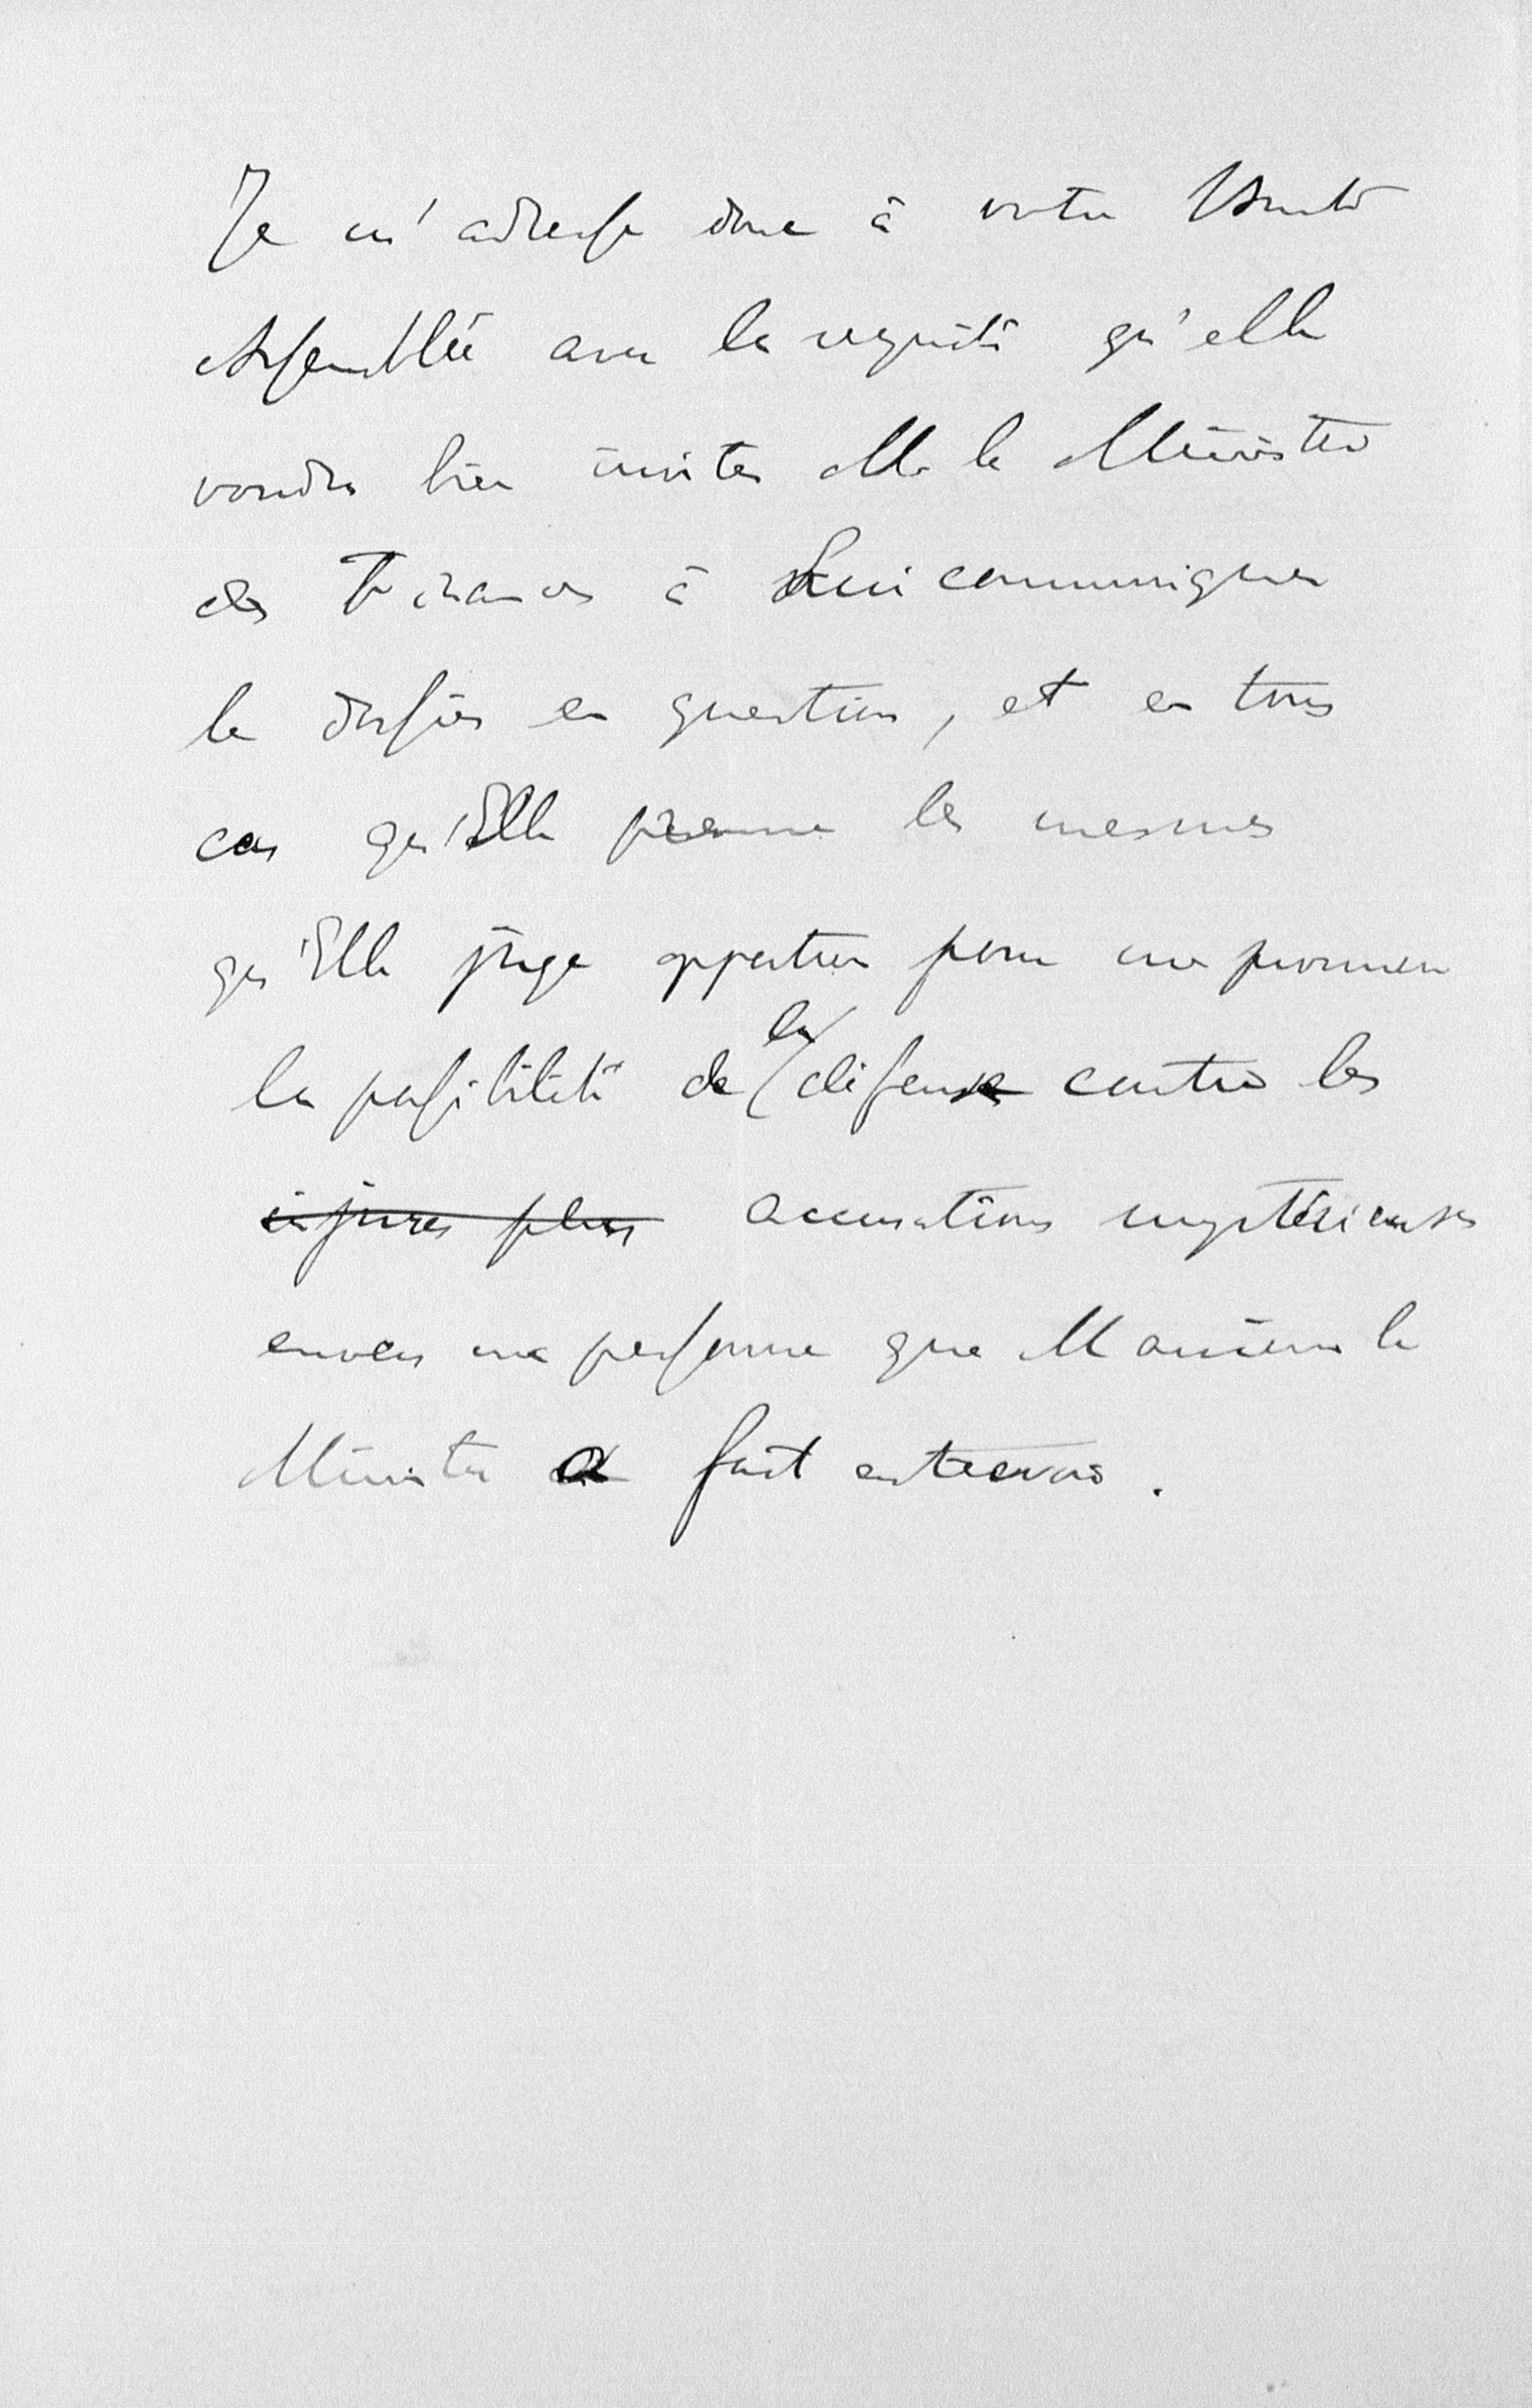 Je m'adresse donc à votre haute
Assemblée avec la requête qu'elle
voudra bien inviter M. le Ministre
des Finances à Lui communiquer
le dossier en question, et en tous
cas qu'Elle prenne les mesures
qu'Elle juge opportun pour me procurer
la possibilité de la défense contre les
injures plus accusations mystérieuses
envers ma personne que Monsieur le
Ministre a fait entrevoir.